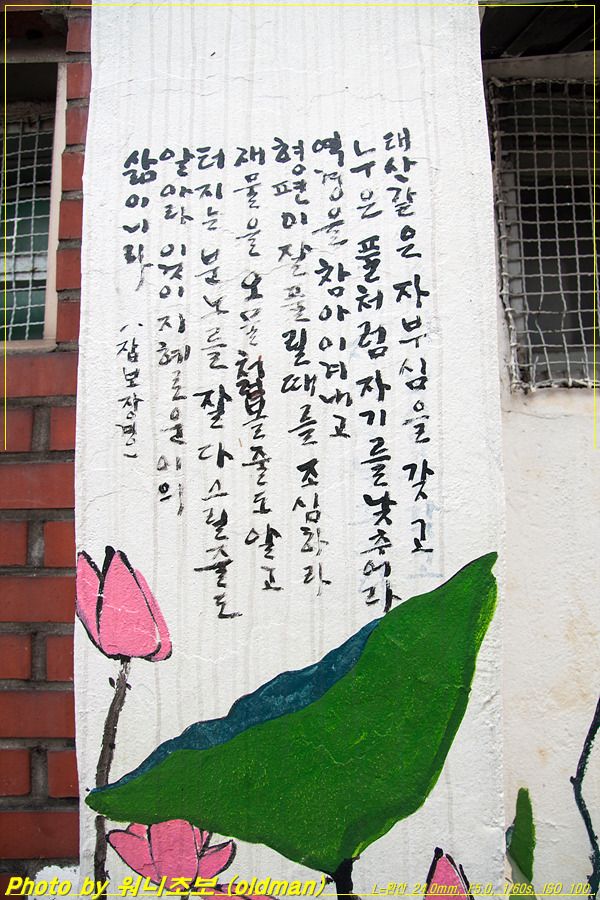 태산같은 자부심을 갖고
누은 풀처럼 자기를 낮추어라
역경을 참아 이겨내고
형편이 잘 풀릴때를 조심하라
재물을 오물처럼 볼줄도 알고
터지는 분노를 잘 다스릴줄도
알아라 이것이 지혜로운 이의
삶이니라 〈잡보장경〉
Photo by 워니초보 (oldman)
L=환산 24.0mm, F5.0, 1/60s, ISO 100